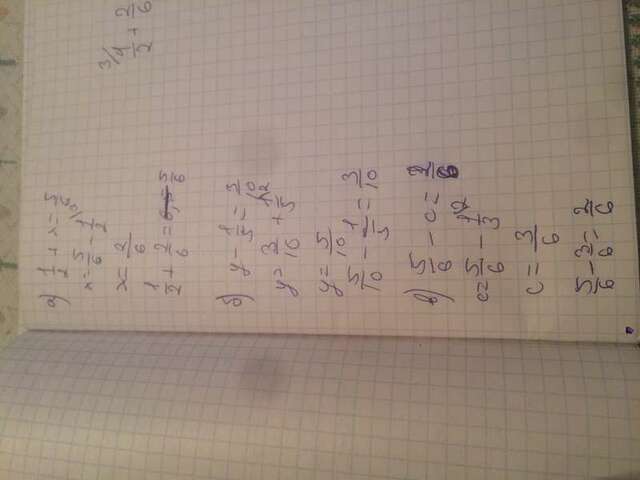 а) 1/2 + x = 5/6
x = 5/6 - 1/2
x = 2/6
1/2 + 2/6 = 5/6
3/ 1/2 + 2/6
б) y - 1/5 = 3/10
y = 3/10 + 1/5 /2
y = 5/10
5/10 - 1/5 = 3/10
в) 5/6 - c =
c = 5/6 - 1/3 /2
c = 3/6
5/6 - 3/6 = 2/6